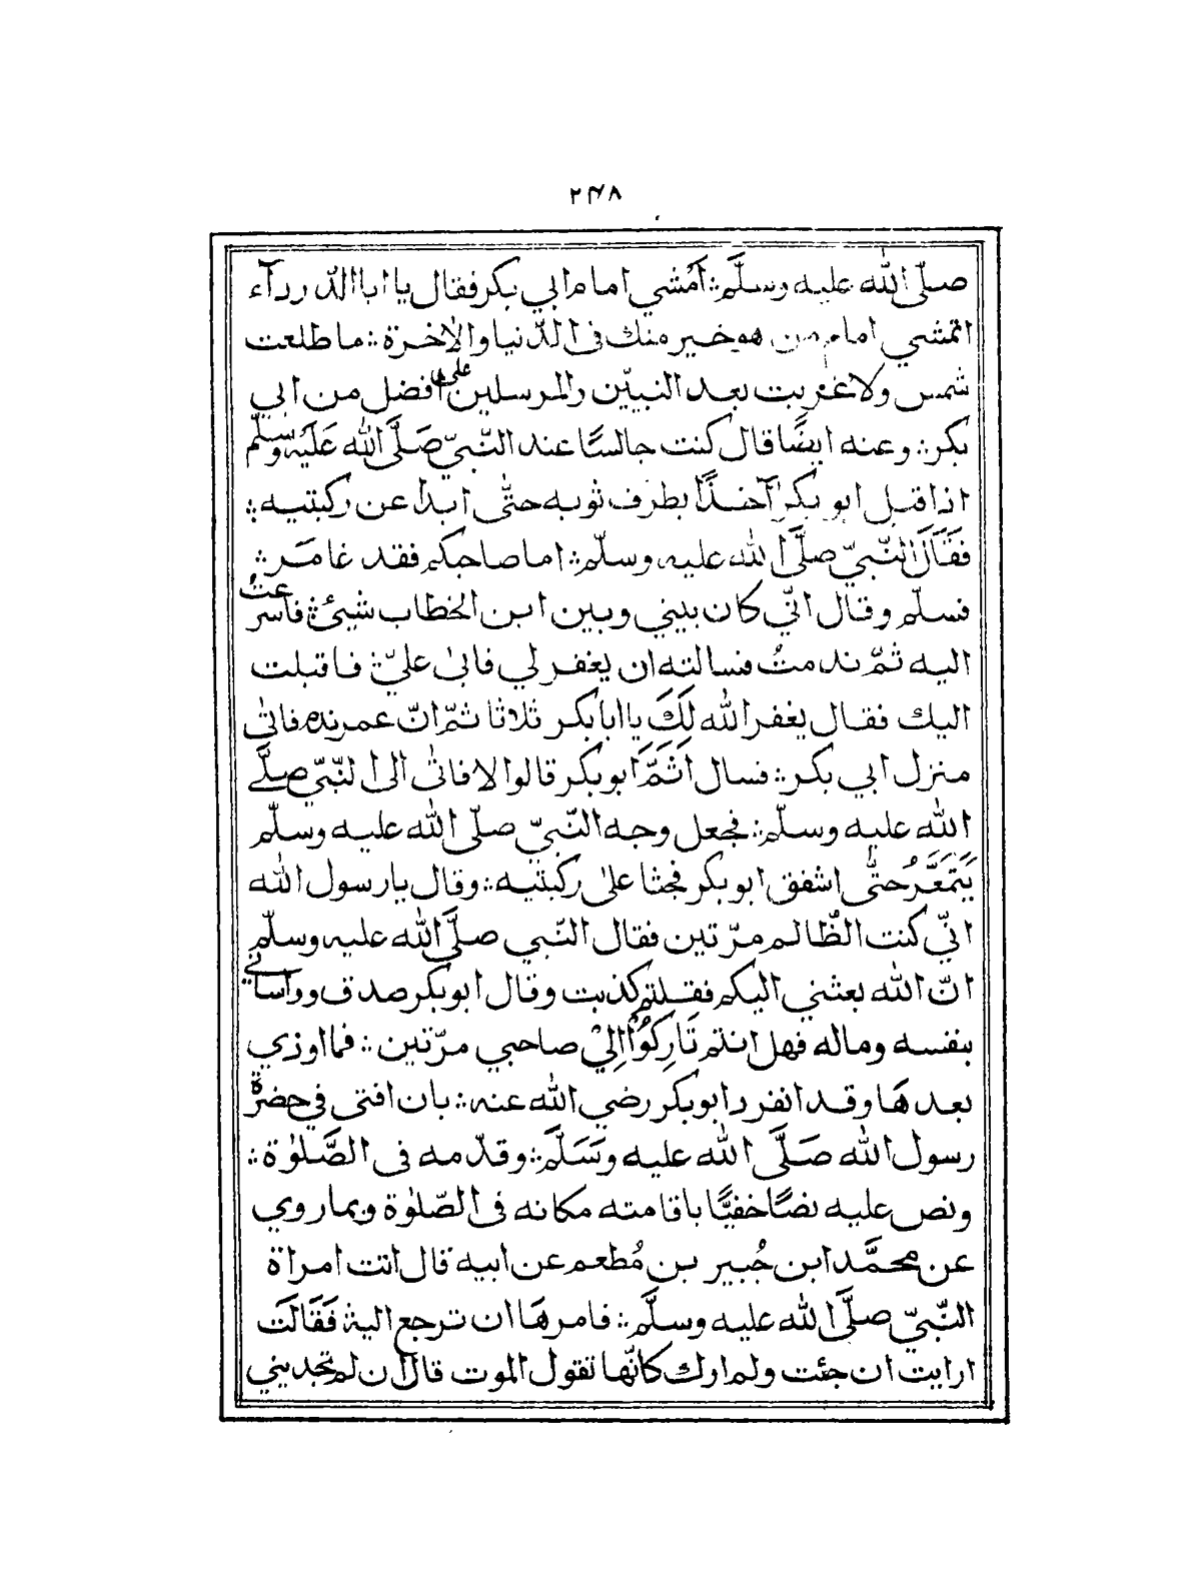 ٢٤٨
صلّى الله عليه وسلَّم ۞ اَمْشي امام ابي بكر فقال يا ابا الدّرداء
اتمشي امام من هو خير منك فى الدّنيا والاٰخرة ۞ ما طلعت
شمس ولا غربت بعد النبيّين والمرسلين على افضل من ابي
بكر ۞ وعنه ايضًا قال كنت جالسًا عند النّبيّ صَلَّى الله عَلَيْهِ وسلّم
اذ اقبل ابو بكر آخذًا بطرف ثوبه حتّٰى ابدا عن ركبتيه ۞
فَقَالَ النّبيّ صلَّى الله عليه وسلّم ۞ اما صاحبكم فقد غامَر ۞
فسلّم وقال انّي كان بيني وبين ابن الخطاب شيئ ۞ فاسرعتُ
اليه ثمّ ندمتُ فسالته ان يغفر لي فابىٰ عليّ ۞ فاقبلت
اليك فقال يغفر الله لَكَ يا ابا بكر ثلاثا ثمّ انّ عمر ندم فاتىٰ
منزل ابي بكر ۞ فسال اَثَمَّ ابو بكر قالوا لا فاتىٰ الى النّبيّ صلَّے
الله عليه وسلّم ۞ فجعل وجه النّبيّ صلّى الله عليه وسلّم
يَتَمَعَّرُ حتّٰى اشفق ابو بكر فجثا علىٰ ركبتيه ۞ وقال يا رسول الله
انّي كنت الظّالم مرّتين فقال النّبي صلَّى الله عليه وسلّم
انّ الله بعثني اليكم فقلتم كذبت وقال ابو بكر صدق وواساني
بنفسه وماله فهل انتم تَارِكُوْا اِلىْ صاحبي مرّتين ۞ فما اوذي
بعدهَا وقد انفرد ابو بكر رضي الله عنه ۞ بان افتى في حضرة
رسول الله صَلَّى الله عليه وَسَلَّم ۞ وقدّمه فى الصَّلوٰة ۞
ونص عليه نصًا خفيًّا باقامته مكانه فى الصّلوٰة وبما روي
عن محمَّد ابن جُبير بن مُطعم عن ابيه قال اتت امراة
النّبيّ صلَّى الله عليه وسلَّم ۞ فامرهَا ان ترجع اليه ۞ فَقَالَت
ارايت ان جئت ولم ارك كانّها تقول الموت قال ان لم تجديني